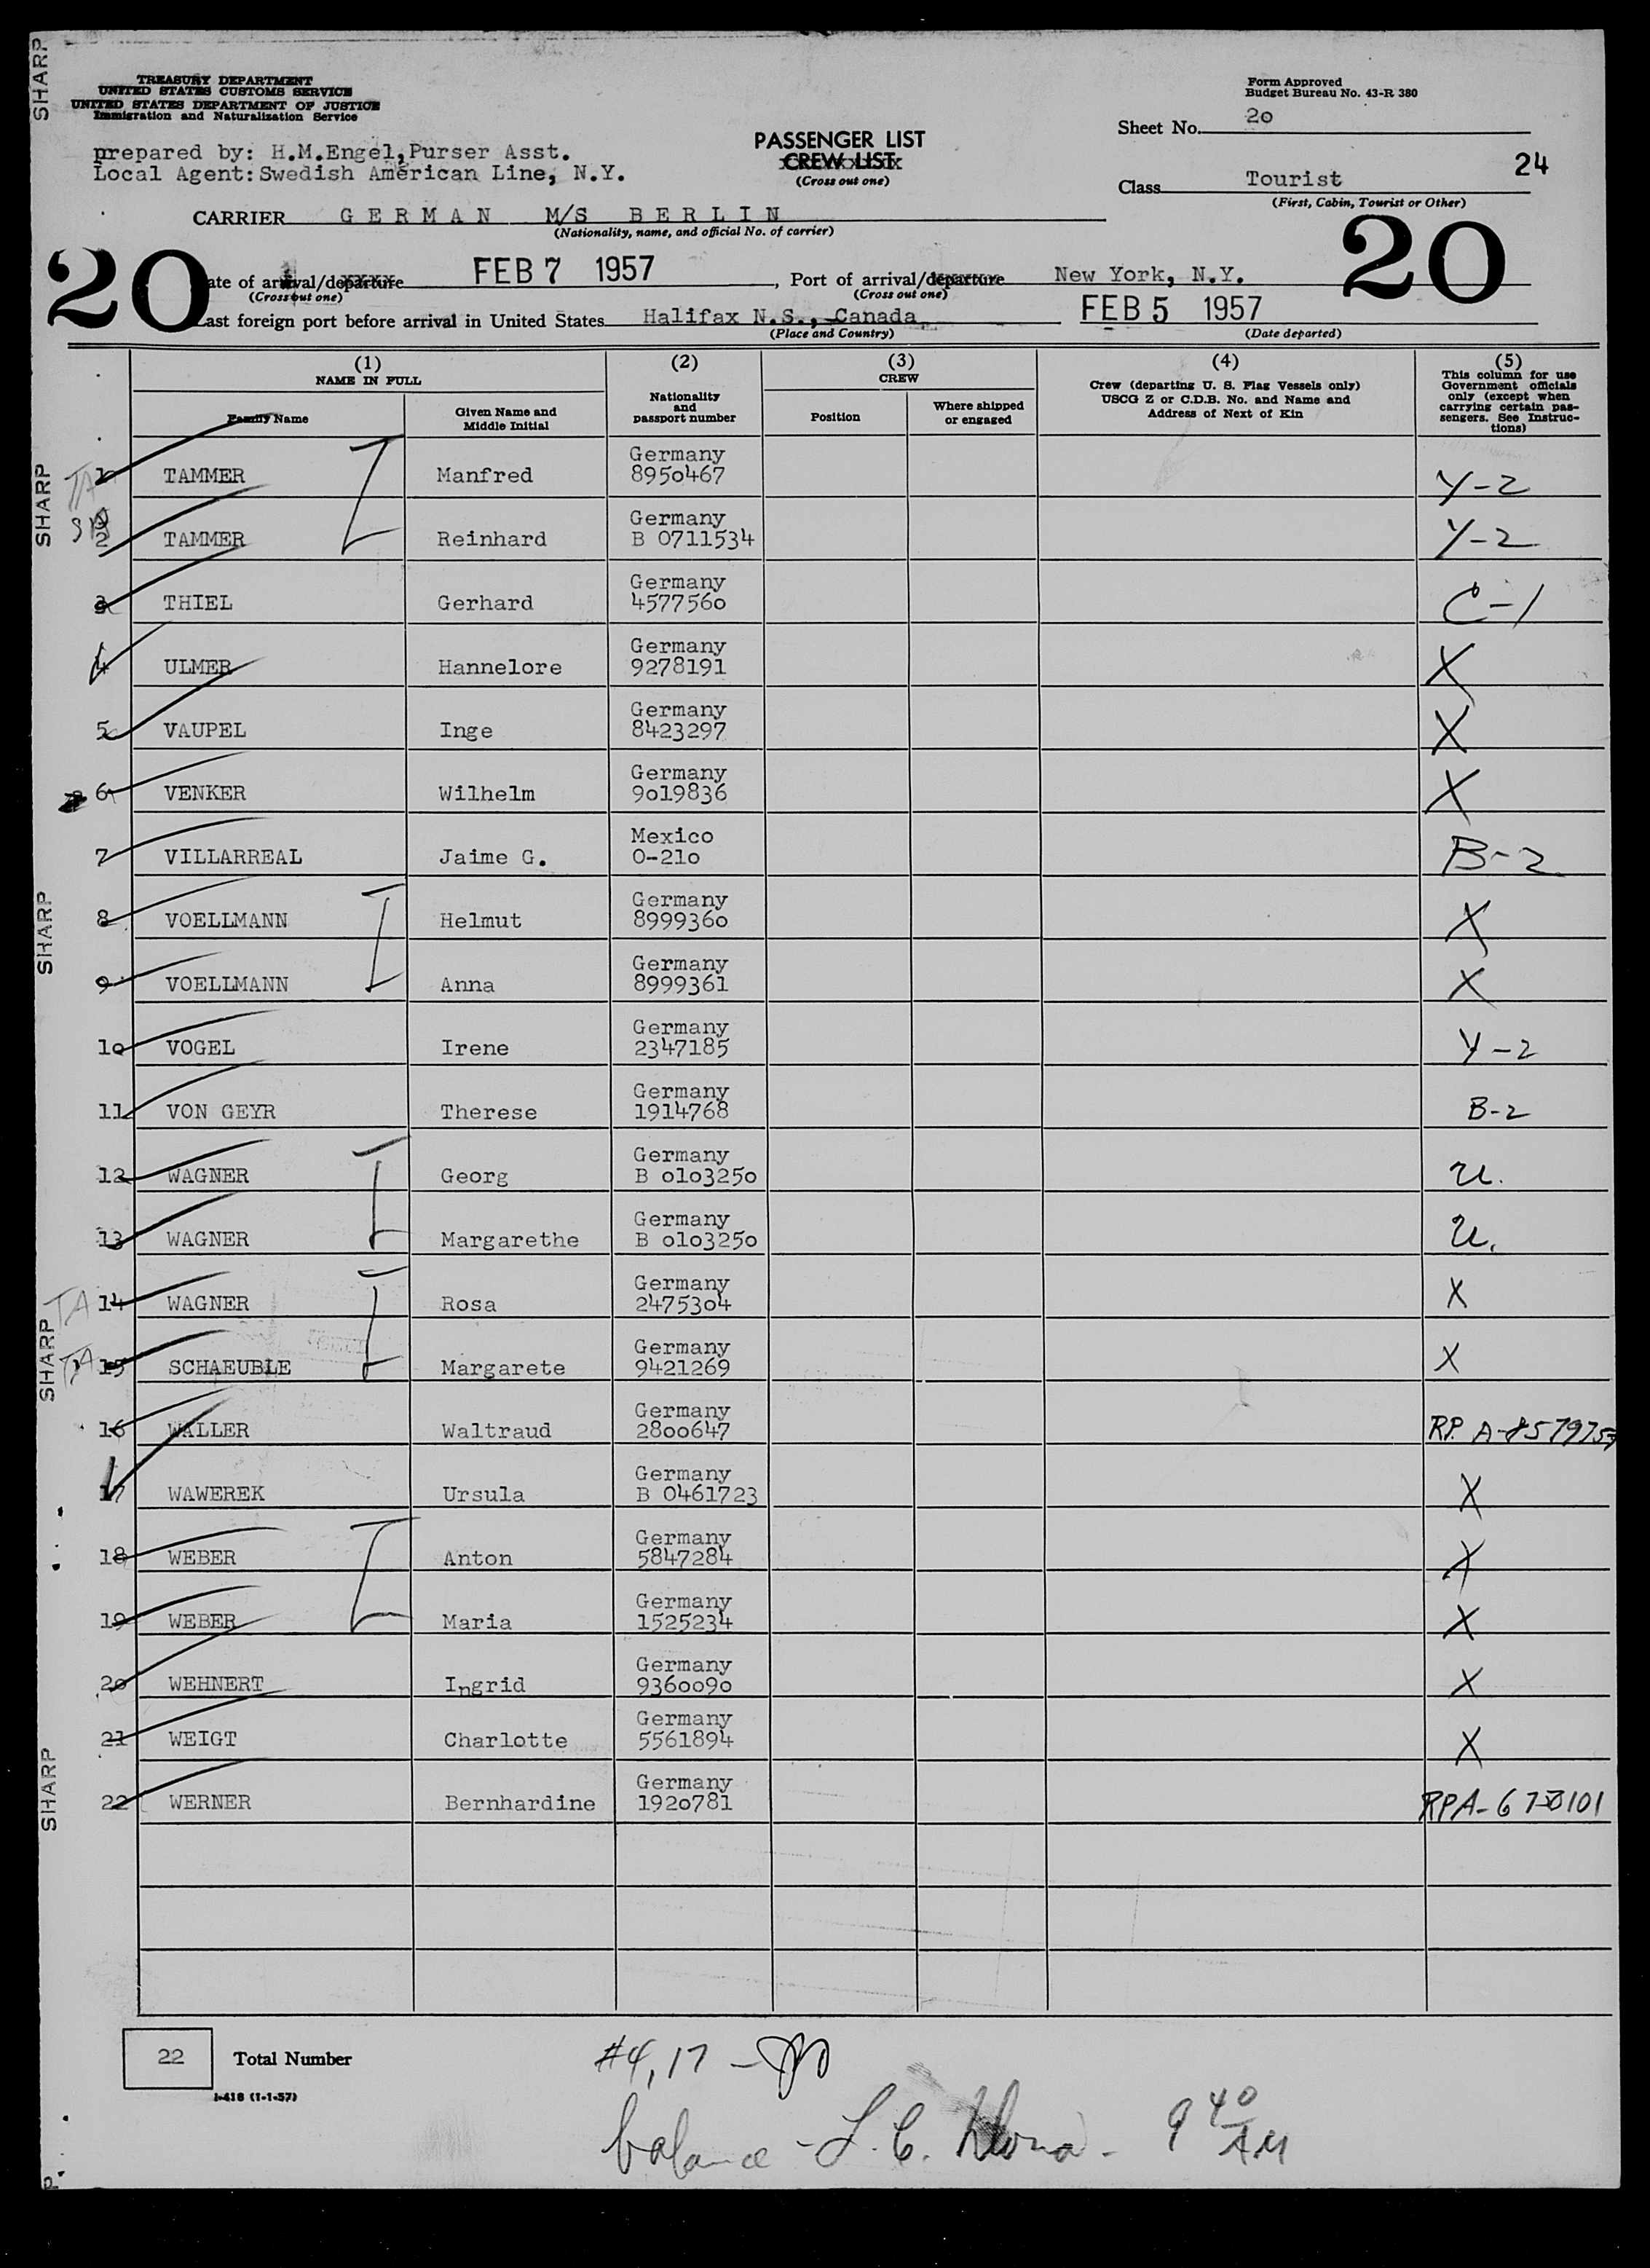 TREASURY DEPARTMENT
UNITED STATES CUSTOMS SERVICE
UNITED STATES DEPARTMENT OF JUSTICE
Immigration and Naturalization Service
Form Approved
Budget Bureau No. 43-R 380
prepared by: H.M.Engel,Purser Asst.
Local Agent:Swedish American Line, N.Y.
PASSENGER LIST
CREW LIST
(Cross out one)
Sheet No. 20
24
Class Tourist
(First, Cabin, Tourist or Other)
CARRIER GERMAN M/S BERLIN
(Nationality, name, and official No. of carrier)
20
20
ate of arrival/departure FEB 7 1957, Port of arrival/departure New York, N.Y.
(Cross out one) (Cross out one)
ast foreign port before arrival in United States Halifax N.S., Canada FEB 5 1957
(Place and Country) (Date departed)
(1) NAME IN FULL
Family Name
Given Name and Middle Initial
(2) Nationality and passport number
(3) CREW
Position
Where shipped or engaged
(4) Crew (departing U. S. Flag Vessels only) USCG Z or C.D.B. No. and Name and Address of Next of Kin
(5) This column for use Government officials only (except when carrying certain passengers. See Instructions)
1 TAMMER Manfred Germany 8950467 Y-2
2 TAMMER Reinhard Germany B 0711534 Y-2
3 THIEL Gerhard Germany 4577560 C-1
4 ULMER Hannelore Germany 9278191 X
5 VAUPEL Inge Germany 8423297 X
6 VENKER Wilhelm Germany 9019836 X
7 VILLARREAL Jaime G. Mexico O-210 B-2
8 VOELLMANN Helmut Germany 8999360 X
9 VOELLMANN Anna Germany 8999361 X
10 VOGEL Irene Germany 2347185 Y-2
11 VON GEYR Therese Germany 1914768 B-2
12 WAGNER Georg Germany B 0103250 U.
13 WAGNER Margarethe Germany B 0103250 U.
TA 14 WAGNER Rosa Germany 2475304 X
TA 15 SCHAEUBLE Margarete Germany 9421269 X
16 WALLER Waltraud Germany 2800647 RP.
17 WAWEREK Ursula Germany B 0461723 X
18 WEBER Anton Germany 5847284 X
19 WEBER Maria Germany 1525234 X
20 WEHNERT Ingrid Germany 9360090 X
21 WEIGT Charlotte Germany 5561894 X
22 WERNER Bernhardine Germany 1920781 RPA-
22 Total Number
I-418 (1-1-57)
#4,17 -
balance - 9 40 AM
SHARP
SHARP
SHARP
SHARP
SHARP